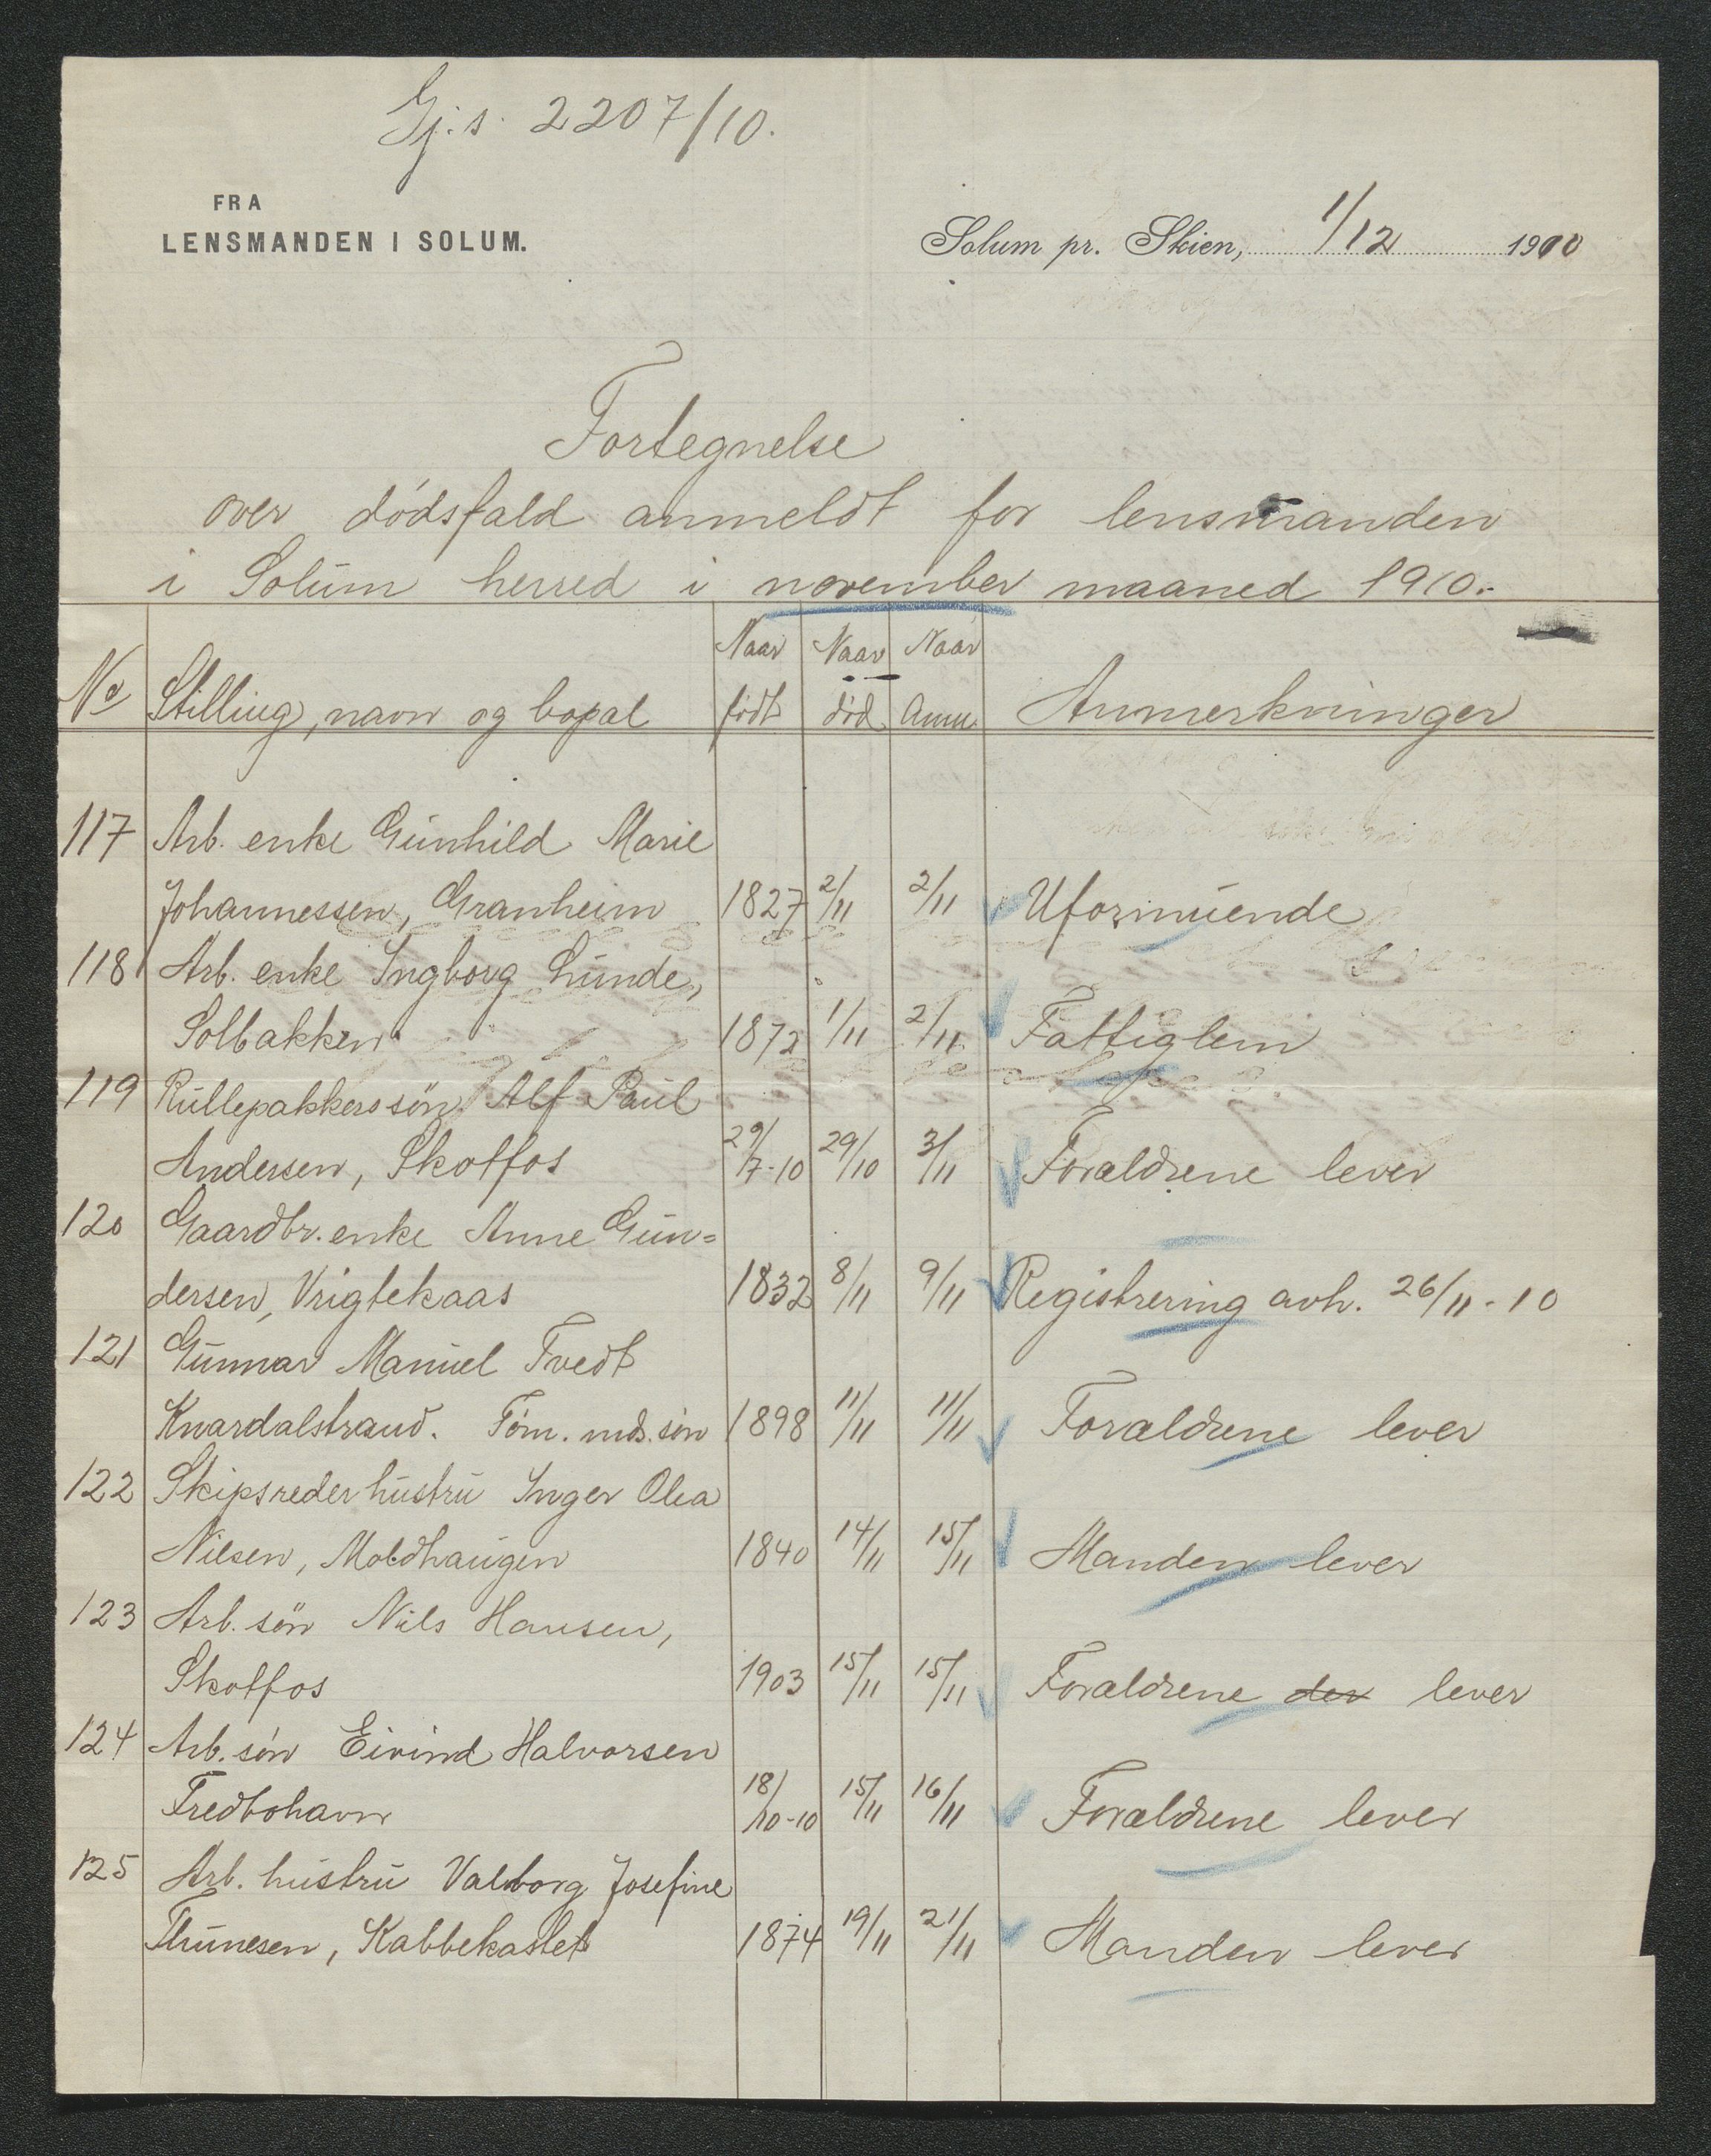 Gj.s. 2207/10.
FRA
LENSMANDEN I SOLUM.
Solum pr. Skien, 1/12 1910
Fortegnelse
over dødsfald anmeldt for lensmanden
i Solum herred i november maaned 1910.
No Stilling, navn og bopæl Naar født Naar død Naar Anm. Anmerkninger
117 Arb. enke Gunhild Marie
Johannessen, Granheim 1827 2/11 2/11 Uformuende
118 Arb. enke Ingborg Lunde,
Solbakken 1872 1/11 2/11 Fattiglem
119 Rullepakkerssön Alf Paul
Andersen, Skotfos 29/7-10 29/10 3/11 Forældrene lever
120 Gaardbr. enke Anne Gun=
dersen, Vrigtekaas 1832 8/11 9/11 Registrering avh. 26/11-10
121 Gunnar Manuel Tvedt
Knardalstrand. Töm. mds. sön 1898 11/11 11/11 Forældrene lever
122 Skipsreder hustru Inger Olea
Nilsen, Moldhaugen 1840 14/11 15/11 Manden lever
123 Arb. sön Nils Hansen,
Skotfos 1903 15/11 15/11 Forældrene der lever
124 Arb. søn Eivind Halvorsen
Fredbohavn 18/10-10 15/11 16/11 Forældrene lever
125 Arb. hustru Valborg Josefine
Thunesen, Kabbekastet 1874 19/11 21/11 Manden lever